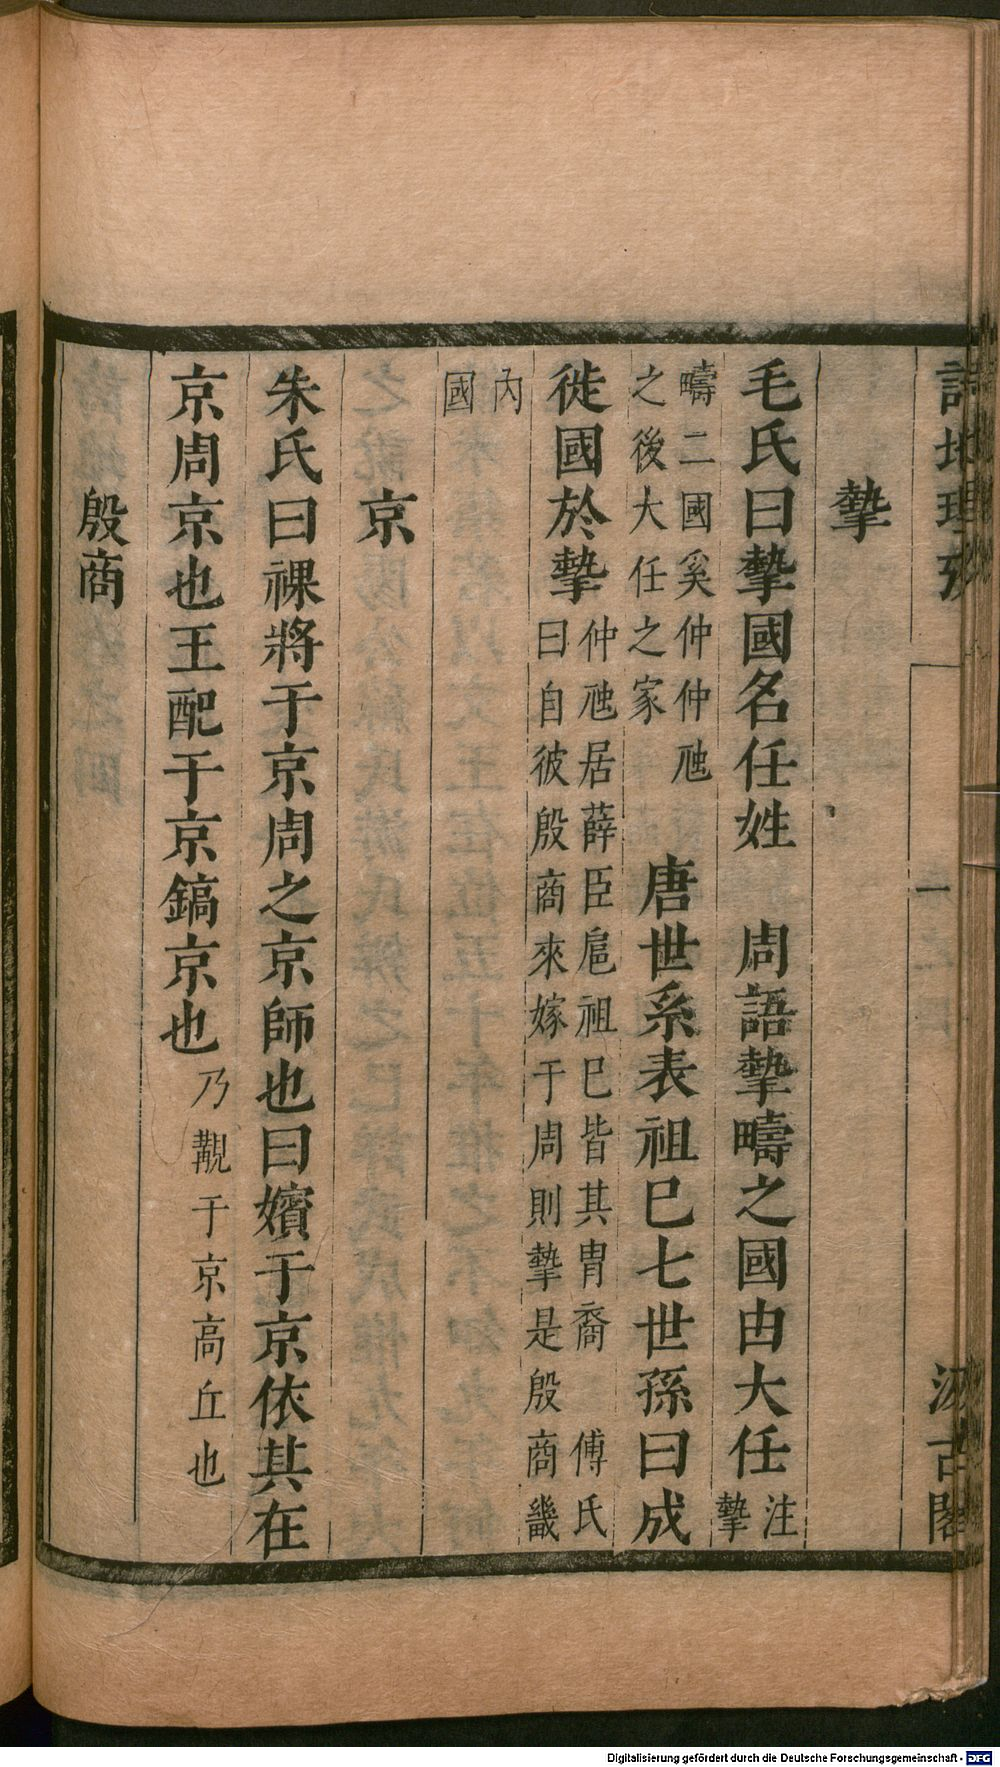 詩地理攷
一
汲古閣
摯
毛氏曰摯國名任姓　周語摯疇之國由大任
注
摯
疇二國奚仲仲虺
之後大任之家
唐世系表祖巳七世孫曰成
徙國於摯
仲虺居薛臣扈祖巳皆其胄裔　傅氏
曰自彼殷商來嫁于周則摯是殷商畿
內
國
京
朱氏曰祼將于京周之京師也曰嬪于京依其在
京周京也王配于京鎬京也
乃覯于京高丘也
殷商
Digitalisierung gefördert durch die Deutsche Forschungsgemeinschaft - DFG